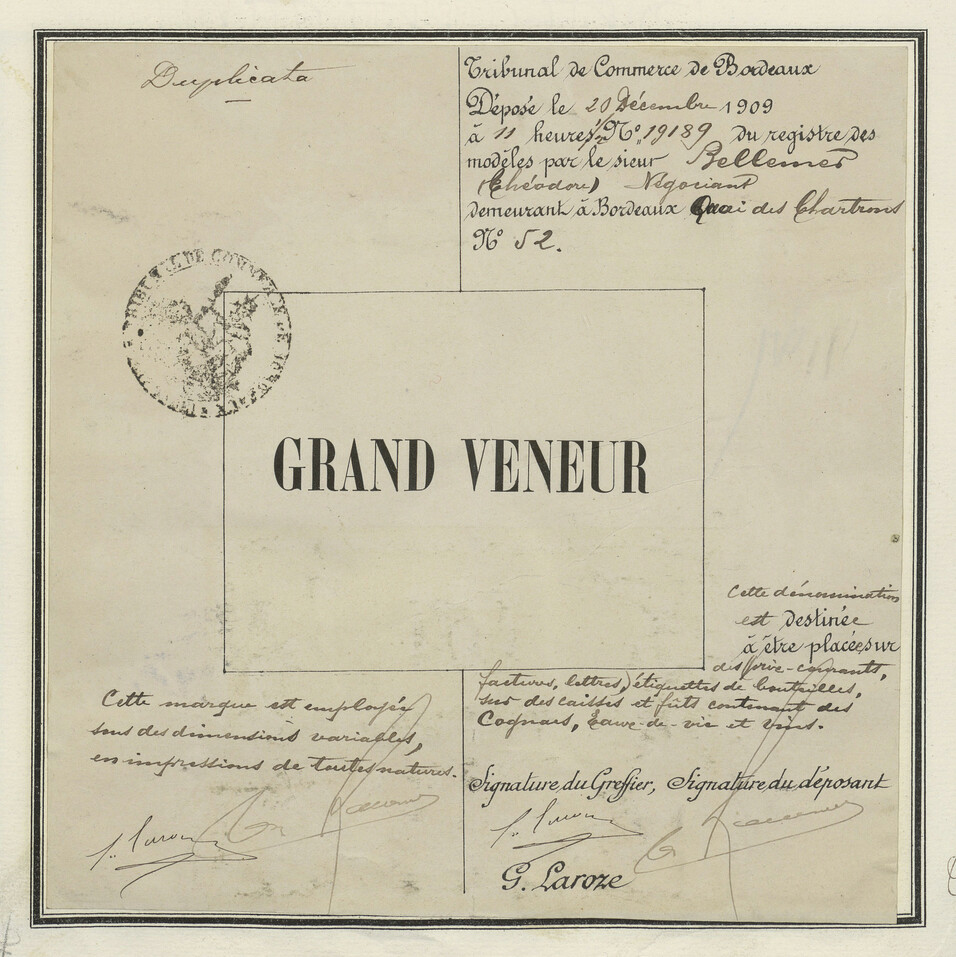 Duplicata
Tribunal de Commerce de Bordeaux
Déposé le 20 Décembre 1909
à 11 heures N° 19189 du registre des
modèles par le sieur Bellemer
(Théodore) Négociant
demeurant à Bordeaux Quai des Chartrons
N° 52.
TRIBUNAL DE COMMERCE DE
GRAND VENEUR
Cette dénomination
est destinée
à être placée sur
des prix-courants,
factures, lettres, étiquettes de bouteilles,
sur des caisses et fûts contenant des
Cognacs, Eaux-de-vie et vins.
Cette marque est employée
sous des dimensions variables,
en impressions de toutes natures.
Signature du Greffier, Signature du déposant
G. Laroze